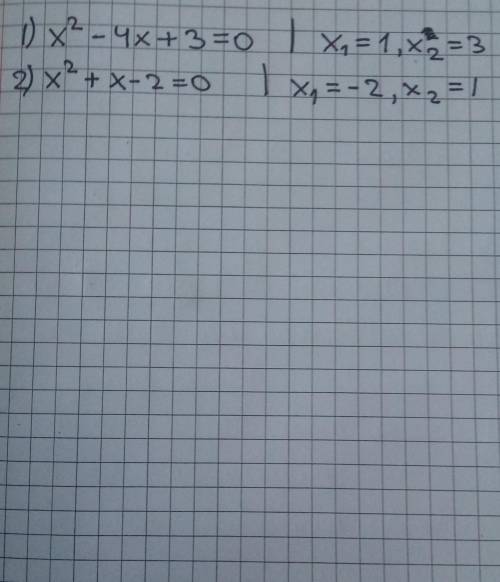 1) x² - 4x + 3 = 0 | x₁ = 1, x₂ = 3
2) x² + x - 2 = 0 | x₁ = -2, x₂ = 1